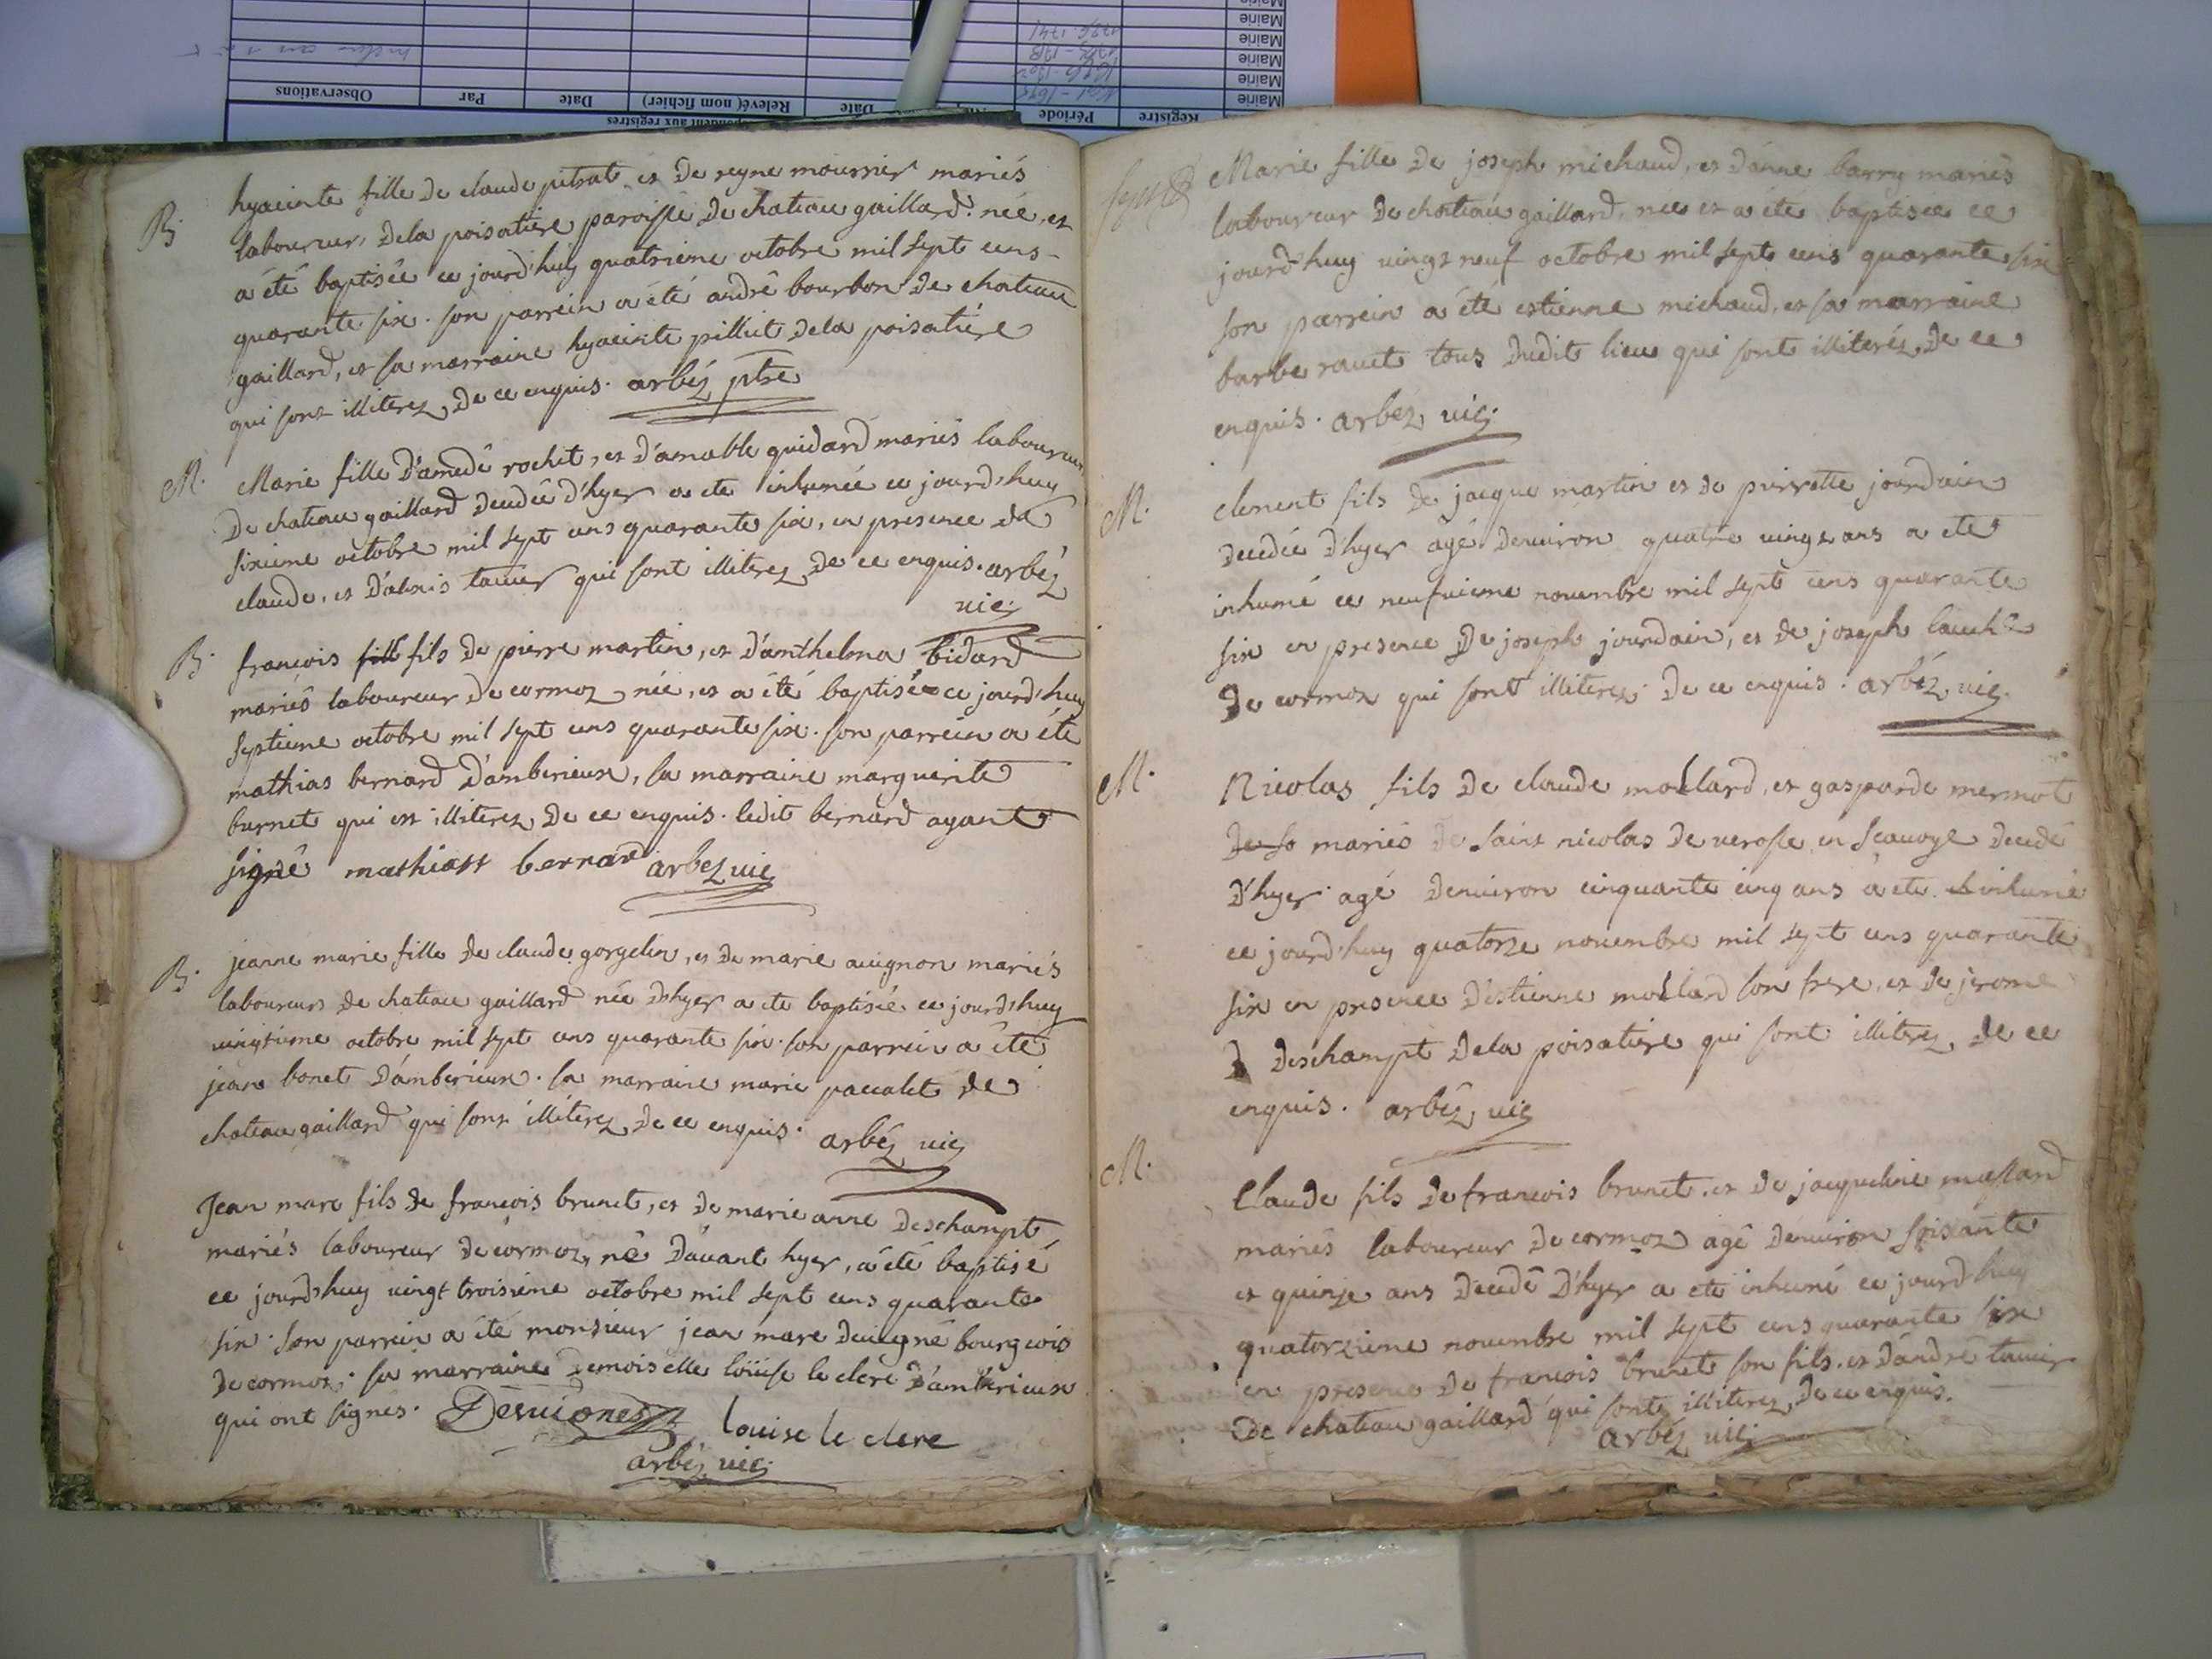 B.
hyacinte fille de claude pitrat et de reyne mourrier mariés
laboureur, dela poisatiere paroisse de chateau gaillard. née, et
a été baptisée ce jourd'huy quatrieme octobre mil sept cens
quarante six. son parrein a été andré bourbon de chateau
gaillard, et sa marraine hyacinte pilliet dela poisatière
qui sont illiterez de ce enquis. arbéz ptre
M.
Marie fille d'amedé rochet, et d'amable guidard mariés laboureur
de chateau gaillard decedée d'hyer a ete inhumée ce jourd'huy
sixieme octobre mil sept cens quarante six, en presence de
claude, et d'alexis tavier qui sont illiterez de ce enquis. arbéz
vic;
B.
francois fill fils de pierre martin, et d'anthelma bidard
mariés laboureur de cormoz née, et a été baptisé ce jourd'huy
septieme octobre mil sept cens quarante six. son parrein a été
mathias bernard d'amberieux, sa marraine marguerite
burnet qui est illiterez de ce enquis. ledit bernard ayant
signé mathiass bernard arbez vic;
B.
jeanne marie fille de claude gorgelin, et de marie avignon mariés
laboureurs de chateau gaillard née d'hyer a ete baptisée ce jourd'huy
vingtieme octobre mil sept cens quarante six. son parrein a été
jean bonet d'amberieux. sa marraine marie pacalet de
chateau gaillard qui sont illiterez de ce enquis. arbéz vic;
Jean marc fils de francois brunet, et de marie anne deschampt
mariés laboureur de cormoz, né d'avant hyer, a été baptisé
ce jourd'huy vingt troisieme octobre mil sept cens quarante
six. son parrein a été monsieur jean marc devigne bourgeois
de cormoz. sa marraine demoiselle loüise le clerc d'amberieux
qui ont signés. Desvignes louise le clere
arbéz vic;
Marie fille de joseph michaud, et d'anne barry mariés
laboureur de chateau gaillard, née et a éte baptisée ce
jourd'huy vingt neuf octobre mil sept cens quarante six
son parrein a été estienne michaud, et sa marraine
barbe ravet tous dudit lieu qui sont illiteréz de ce
enquis. arbez vic;
M.
clement fils de jacque martin et de pierrette jourdain
decedée d'hyer agé denviron quatre vingt ans a eté
inhumé ce neufvieme novembre mil sept cens quarante
six en presence de joseph jourdain, et de joseph
de cormoz qui sont illiterez de ce enquis. arbéz vic;
M.
Nicolas fils de claude mollard, et gasparde mermot
de so mariés de saint nicolas de verosse en scavoye decedé
d'hyer agé denviron cinquante cinq ans a ete inhumé
ce jourd'huy quatorze novembre mil sept cens quarante
six en presence d'estienne mollard son frere, et de jerome
d deschampt dela poisatiere qui sont illiterez, de ce
enquis. arbéz vic;
M.
Claude fils de francois brunet, et de jacqueline massard
mariés laboureur de cormoz agé denviron soixante
et quinze ans decedé d'hyer a eté inhumé ce jourd'huy
quatorzieme novembre mil sept cens quarante six
en presence de francois brunet son fils, et d'andré tavier
de chateau gaillard qui sont illiterez de ce enquis.
arbéz vic;
Observations
Par
Date
Relevé( nom fichier)
Date
Période
Registre
Mairie
Mairie
Mairie
Mairie
Mairie